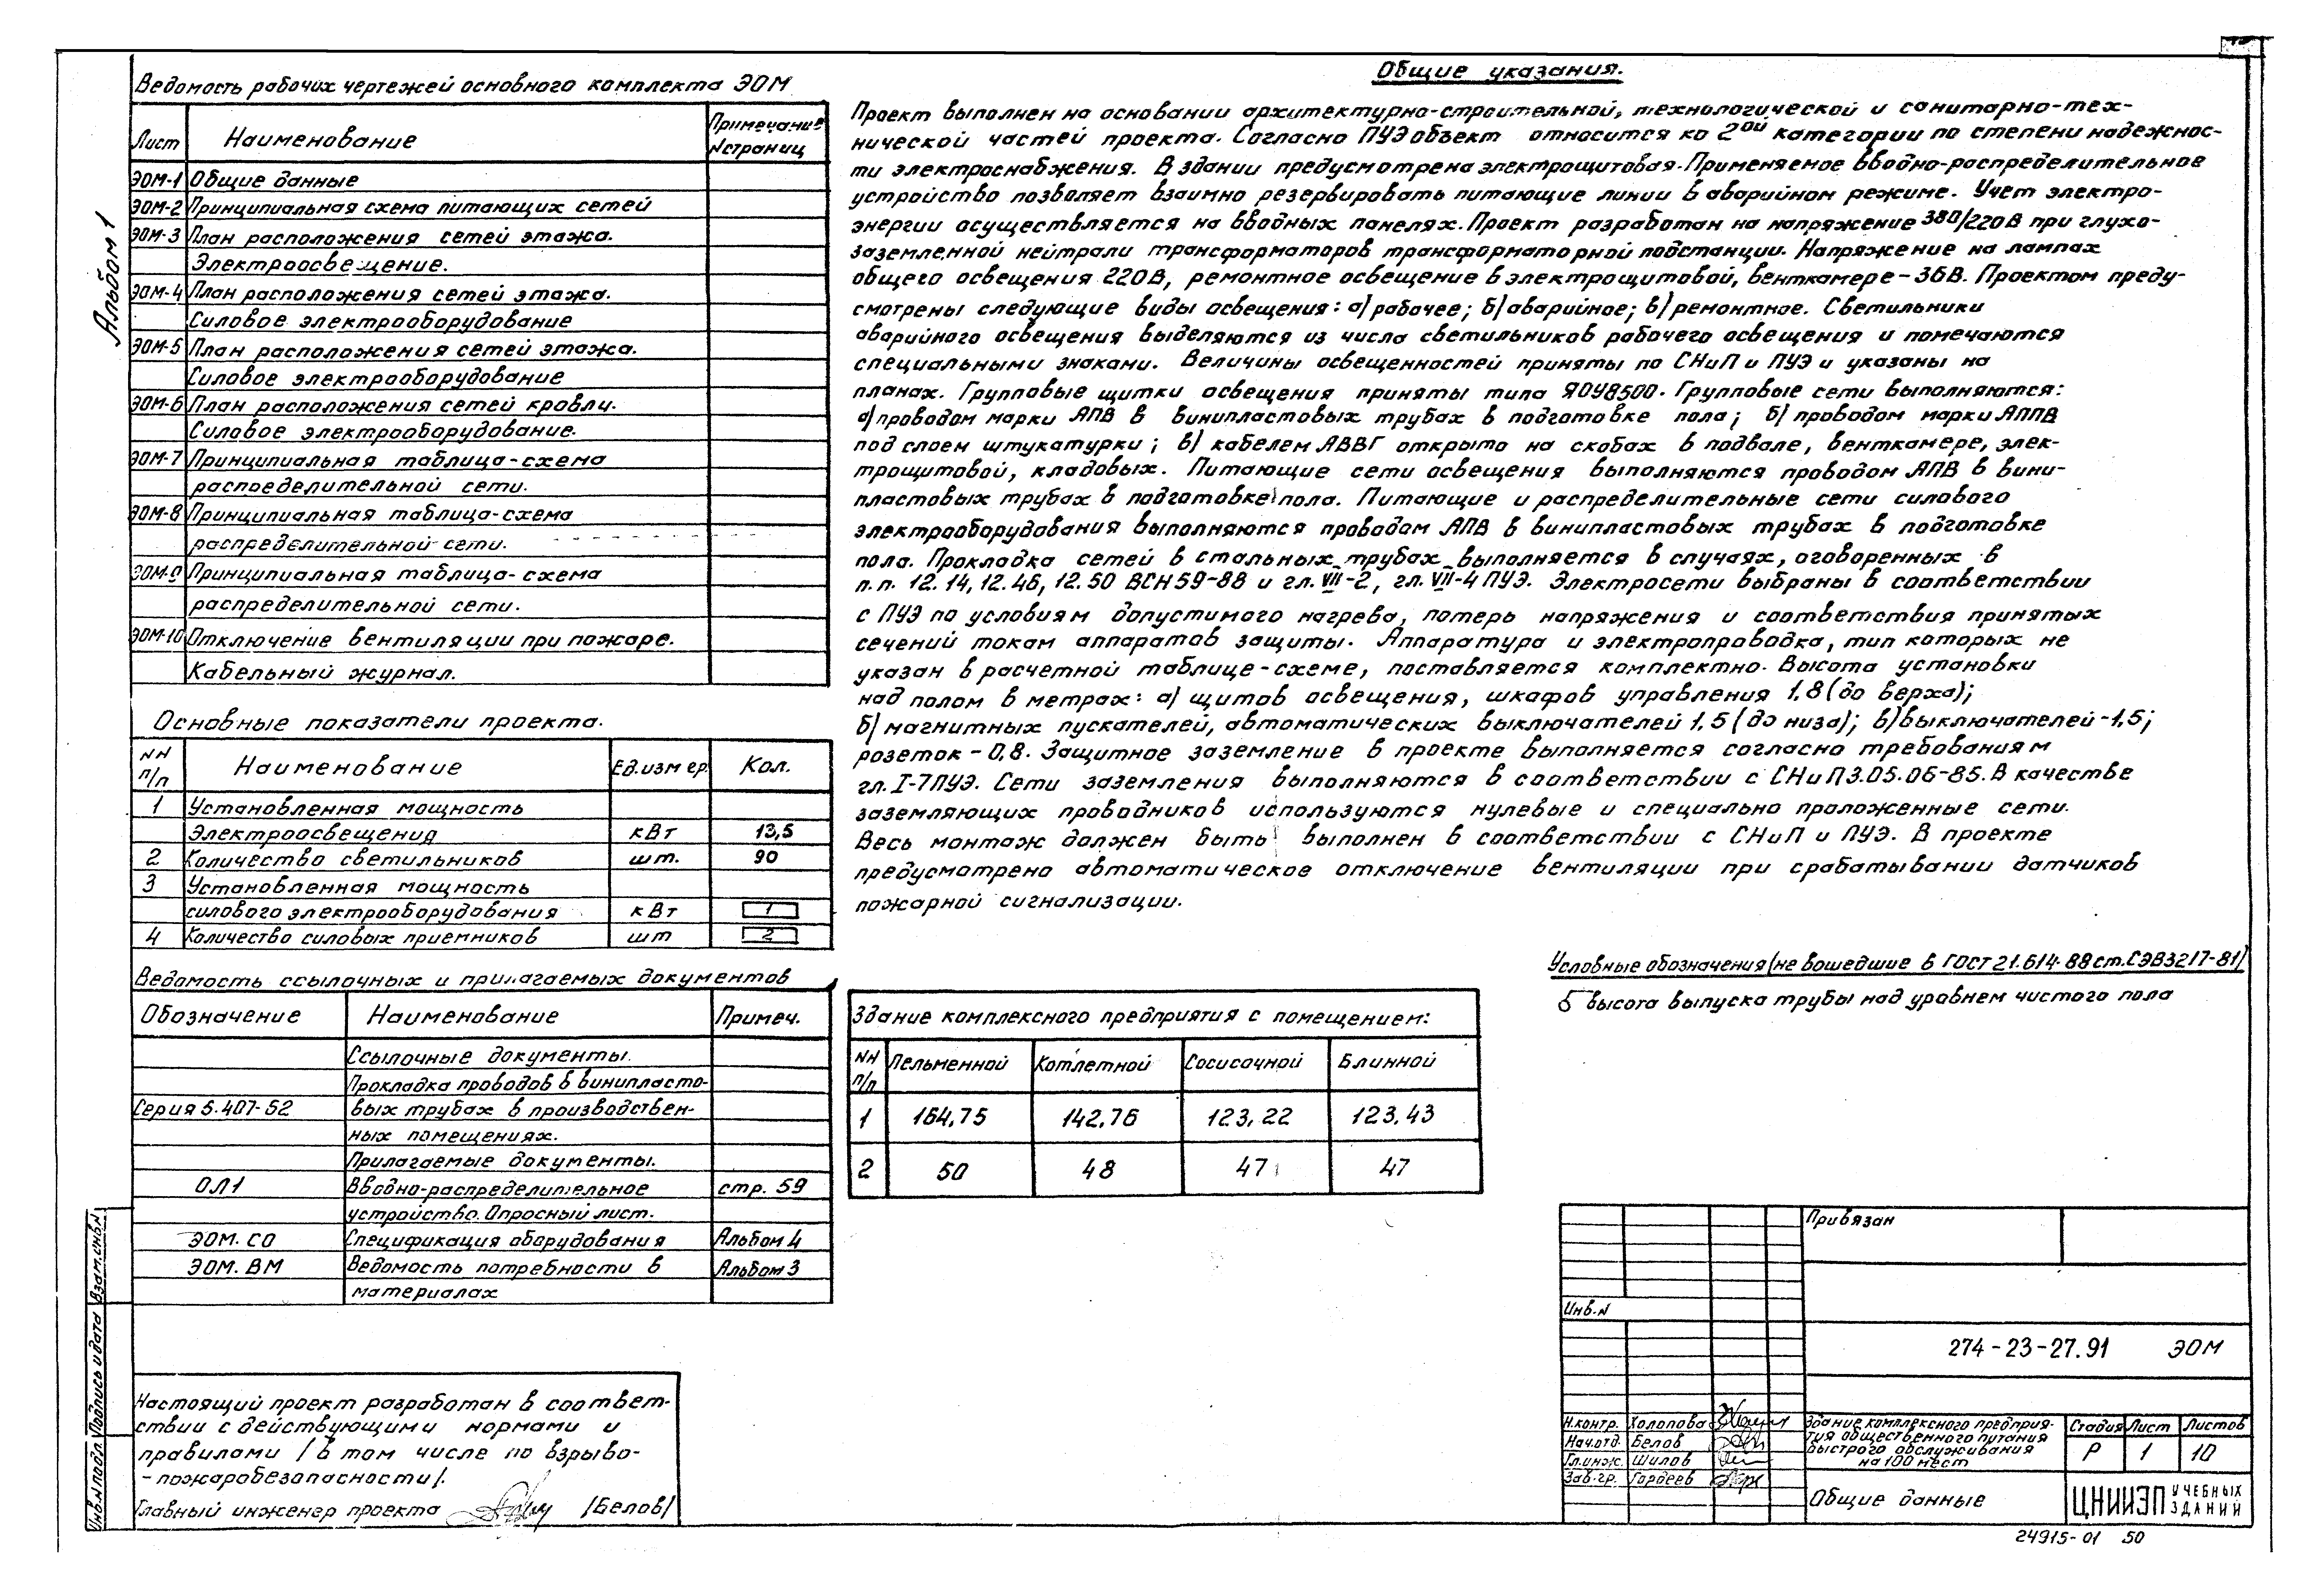 Альбом 1
Ведомость рабочих чертежей основного комплекта ЭОМ
Лист Наименование Примечание №страниц
ЭОМ-1 Общие данные
ЭОМ-2 Принципиальная схема питающих сетей
ЭОМ-3 План расположения сетей этажа.
Электроосвещение.
ЭОМ-4 План расположения сетей этажа.
Силовое электрооборудование
ЭОМ-5 План расположения сетей этажа.
Силовое электрооборудование
ЭОМ-6 План расположения сетей кровли.
Силовое электрооборудование.
ЭОМ-7 Принципиальная таблица-схема
распределительной сети.
ЭОМ-8 Принципиальная таблица-схема
распределительной сети.
ЭОМ-9 Принципиальная таблица-схема
распределительной сети.
ЭОМ-10 Отключение вентиляции при пожаре.
Кабельный журнал.
Основные показатели проекта.
NN п/п Наименование Ед.измер. Кол.
1 Установленная мощность
Электроосвещения кВт 13,5
2 Количество светильников шт. 90
3 Установленная мощность
силового электрооборудования кВт 1
4 Количество силовых приемников шт 2
Ведомость ссылочных и прилагаемых документов
Обозначение Наименование Примеч.
Ссылочные документы.
Прокладка проводов в винипласто-
Серия 5.407-52 вых трубах в производствен-
ных помещениях.
Прилагаемые документы.
ОЛ1 Вводно-распределительное стр. 59
устройство. Опросный лист.
ЭОМ. СО Спецификация оборудования Альбом 4
ЭОМ. ВМ Ведомость потребности в Альбом 3
материалах
Настоящий проект разработан в соответ-
ствии с действующими нормами и
правилами /в том числе по взрыво-
-пожаробезопасности/.
Главный инженер проекта /Белов/
Общие указания.
Проект выполнен на основании архитектурно-строительной, технологической и санитарно-тех-
нической частей проекта. Согласно ПУЭ объект относится ко 2ой категории по степени надежнос-
ти электроснабжения. В здании предусмотрена электрощитовая. Применяемое вводно-распределительное
устройство позволяет взаимно резервировать питающие линии в аварийном режиме. Учет электро-
энергии осуществляется на вводных панелях. Проект разработан на напряжение 380/220В при глухо-
заземленной нейтрали трансформаторов трансформаторной подстанции. Напряжение на лампах
общего освещения 220В, ремонтное освещение в электрощитовой, венткамере - 36В. Проектом преду-
смотрены следующие виды освещения: а) рабочее; б) аварийное; в) ремонтное. Светильники
аварийного освещения выделяются из числа светильников рабочего освещения и помечаются
специальными знаками. Величины освещенностей приняты по СНиП и ПУЭ и указаны на
планах. Групповые щитки освещения приняты типа ЯОУ8500. Групповые сети выполняются:
а) проводом марки АПВ в винипластовых трубах в подготовке пола; б) проводом марки АППВ
под слоем штукатурки; в) кабелем АВВГ открыто на скобах в подвале, венткамере, элек-
трощитовой, кладовых. Питающие сети освещения выполняются проводом АПВ в вини-
пластовых трубах в подготовке пола. Питающие и распределительные сети силового
электрооборудования выполняются проводом АПВ в винипластовых трубах в подготовке
пола. Прокладка сетей в стальных трубах выполняется в случаях, оговоренных в
п.п. 12.14, 12.46, 12.50 ВСН 59-88 и гл. VII-2, гл. VII-4 ПУЭ. Электросети выбраны в соответствии
с ПУЭ по условиям допустимого нагрева, потерь напряжения и соответствия принятых
сечений токам аппаратов защиты. Аппаратура и электропроводка, тип которых не
указан в расчетной таблице-схеме, поставляется комплектно. Высота установки
над полом в метрах: а) щитов освещения, шкафов управления 1,8 (до верха);
б) магнитных пускателей, автоматических выключателей 1,5 (до низа); в) выключателей - 1,5;
розеток - 0,8. Защитное заземление в проекте выполняется согласно требованиям
гл. I-7 ПУЭ. Сети заземления выполняются в соответствии с СНиП 3.05.06-85. В качестве
заземляющих проводников используются нулевые и специально проложенные сети.
Весь монтаж должен быть выполнен в соответствии с СНиП и ПУЭ. В проекте
предусмотрено автоматическое отключение вентиляции при срабатывании датчиков
пожарной сигнализации.
Условные обозначения (не вошедшие в ГОСТ 21.614-88 ст.СЭВ3217-81)
б высота выпуска трубы над уровнем чистого пола
Здание комплексного предприятия с помещением:
NN п/п Пельменной Котлетной Сосисочной Блинной
1 164,75 142,76 123,22 123,43
2 50 48 47 47
Привязан
Инв.N
274-23-27.91 ЭОМ
Н.контр. Холопова
Нач.отд. Белов
Гл.инж. Шилов
Зав.гр. Гордеев
Здание комплексного предприя-
тия общественного питания
быстрого обслуживания
на 100 мест
Стадия Лист Листов
Р 1 10
Общие данные
ЦНИИЭП УЧЕБНЫХ ЗДАНИЙ
24915-01 50
Инв.N подл. Подпись и дата Взам.инв.N